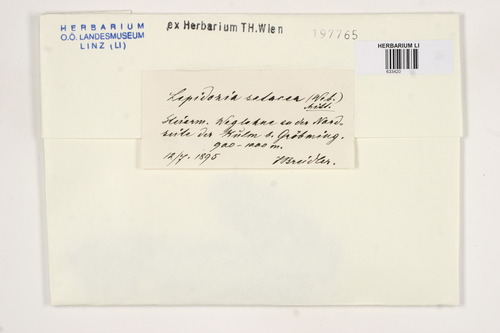 HERBARIUM
O.Ö. LANDESMUSEUM
LINZ (LI)
ex Herbarium TH.Wien
197765
HERBARIUM LI
633420
Lepidozia setacea (Web.)
Mitt.
Steierm. an der Nord-
seite der Kulm b. Gröbming.
900-1000 m.
12/7. 1895 JBreidler.